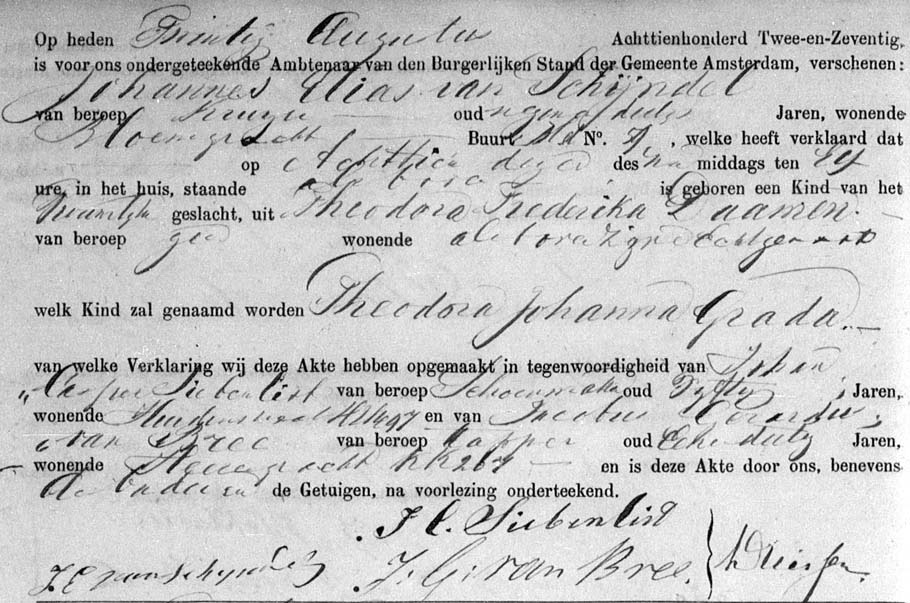 Op heden Twintig Augustus Achttienhonderd Twee-en-Zeventig,
is voor ons ondergeteekende Ambtenaar van den Burgerlijken Stand der Gemeente Amsterdam, verschenen:
Johannes Elias van Schijndel
van beroep oud negen dertig Jaren, wonende
Bloemgracht Buurt No. , welke heeft verklaard dat
op Agttien dezer des na middags ten Elf
ure, in het huis, staande als boven is geboren een Kind van het
Vrouwelijk geslacht, uit Theodora Frederika Daamen.
van beroep geen wonende als boven zijne Echtgenoot
welk Kind zal genaamd worden Theodora Johanna Grada.
van welke Verklaring wij deze Akte hebben opgemaakt in tegenwoordigheid van Johan
Casper Siebenlist van beroep Schoenmaker oud Jaren,
wonende en van Jacobus Gerardus
van Bree van beroep Kapper oud Jaren,
wonende KK267 en is deze Akte door ons, benevens
de de Getuigen, na voorlezing onderteekend.
J C. Siebenlist
J E van Schijndel J. G. van Bree.